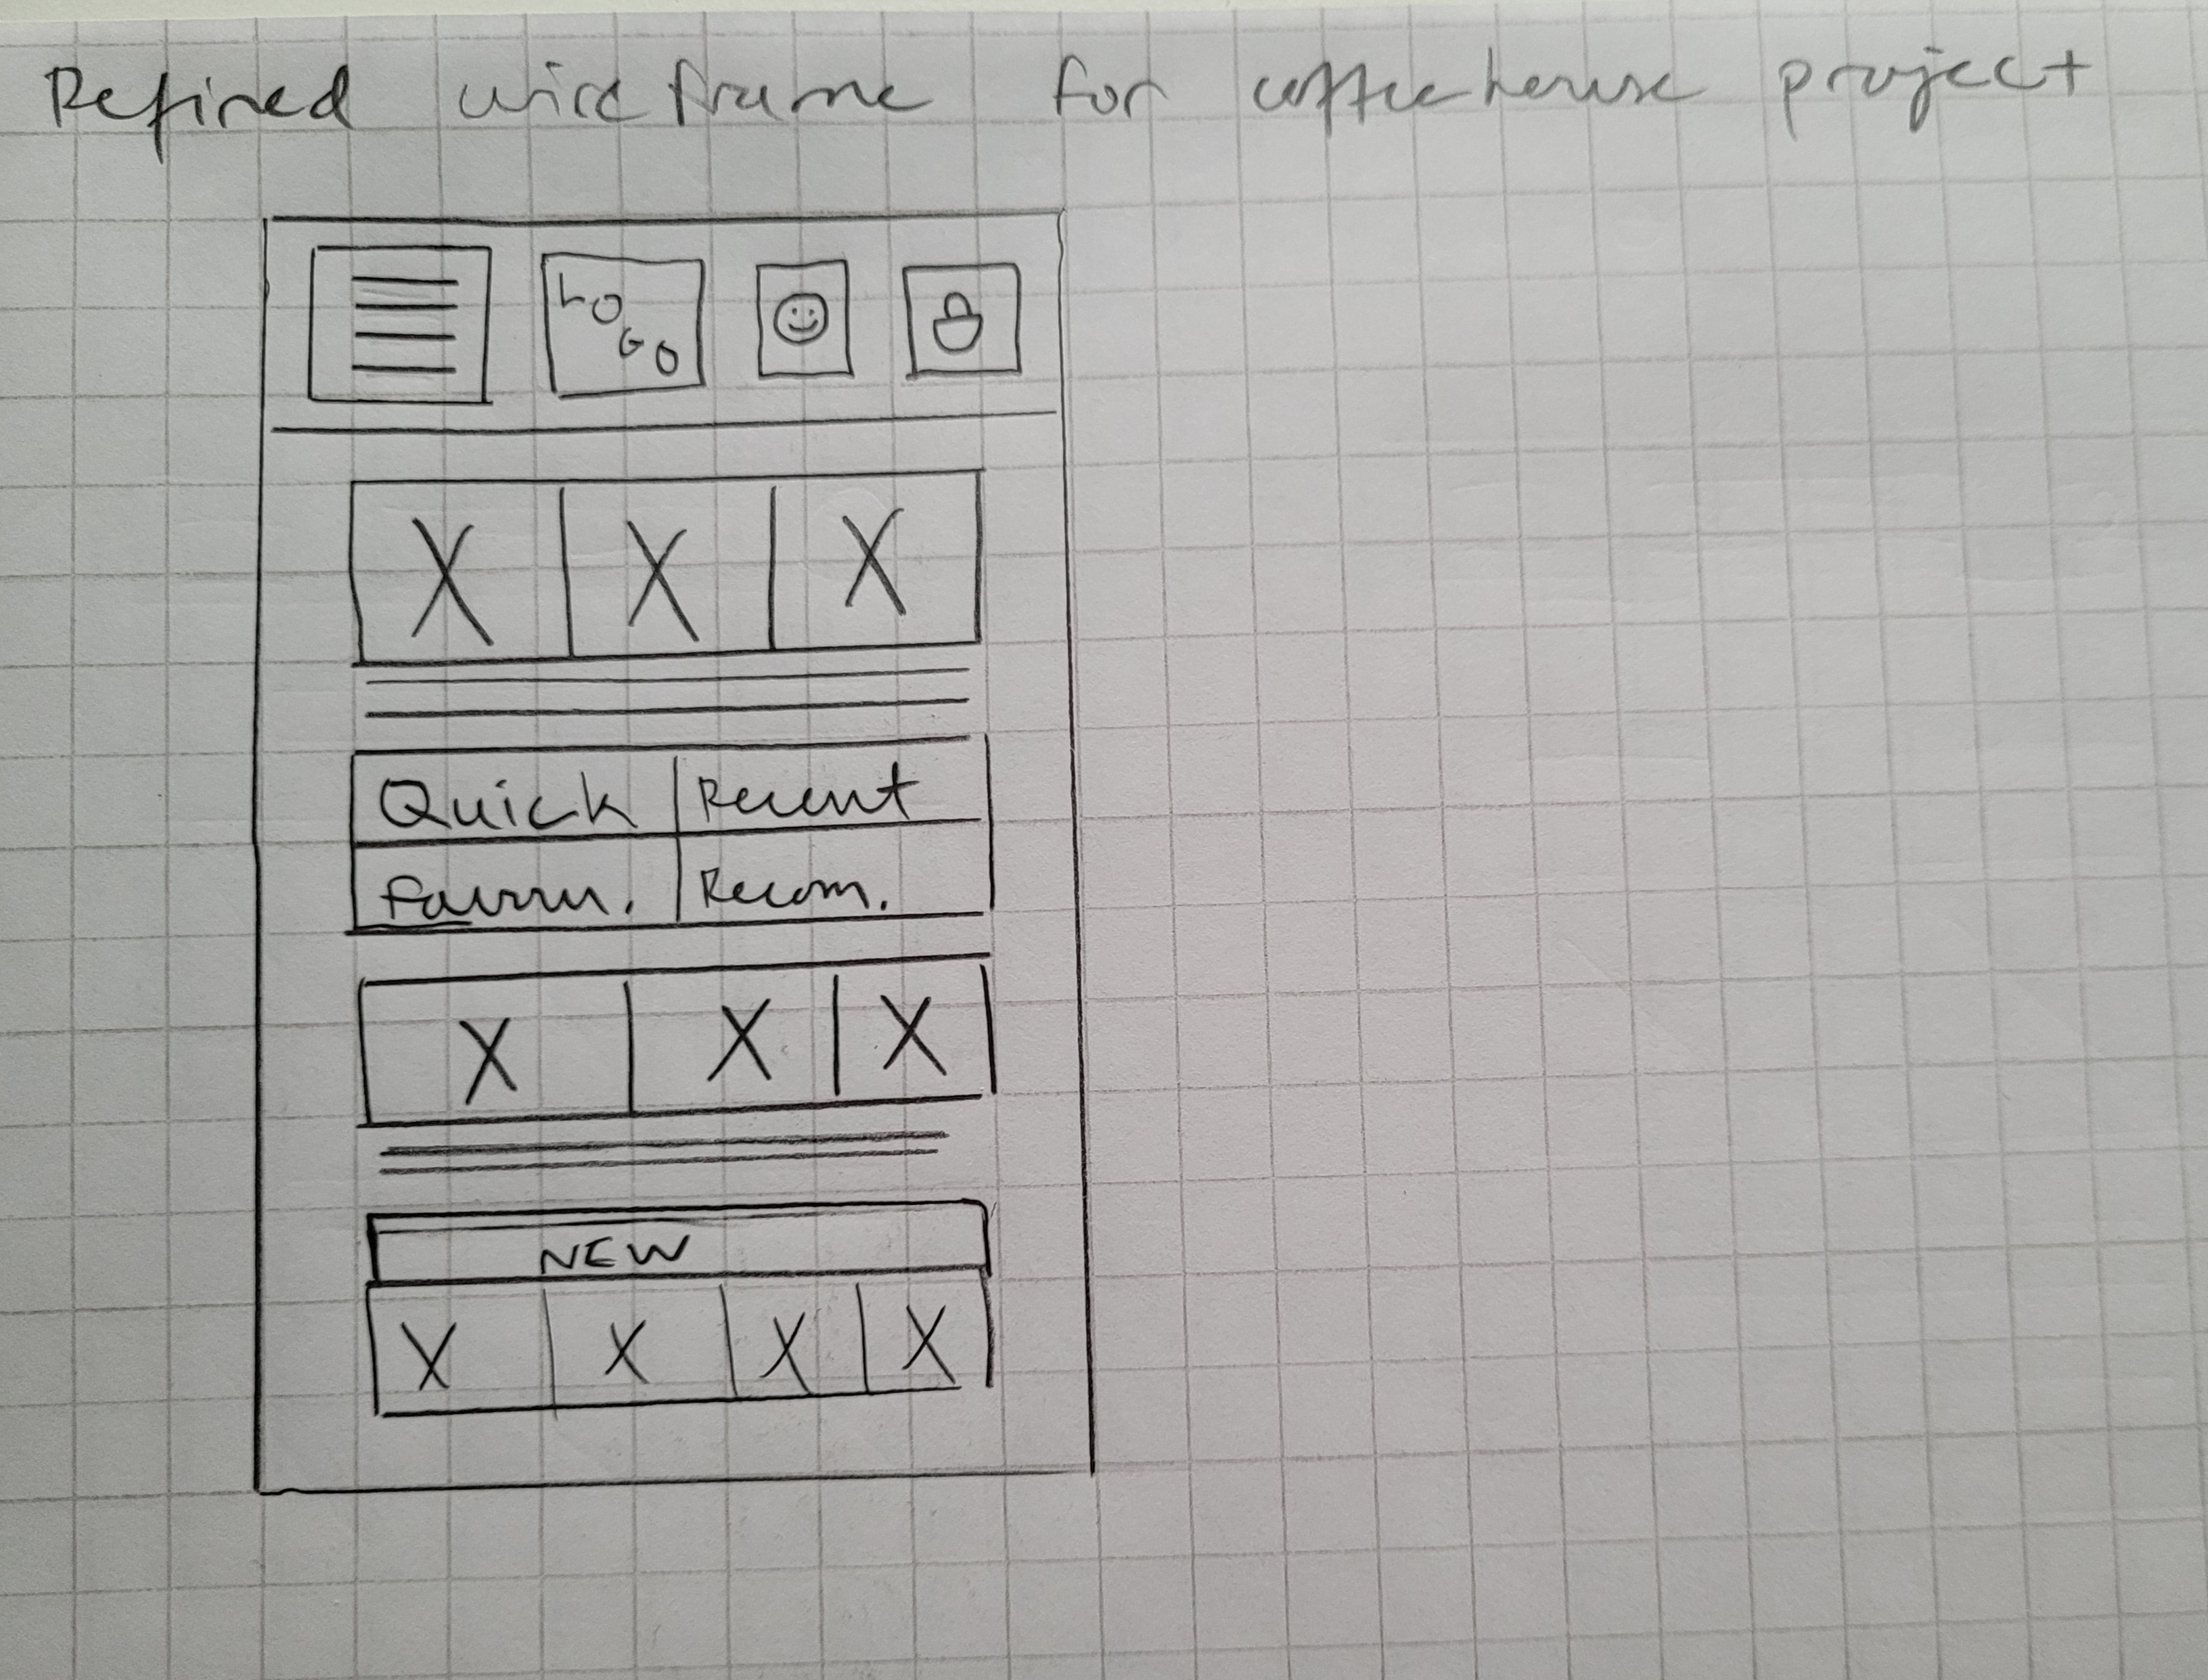 Refined wireframe for coffeehouse project
LO
GO
X X X
Quick Recent
Recom.
X X X
NEW
X X X X